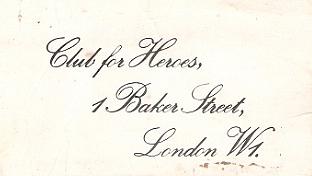 Club for Heroes,
1 Baker Street,
London W1.